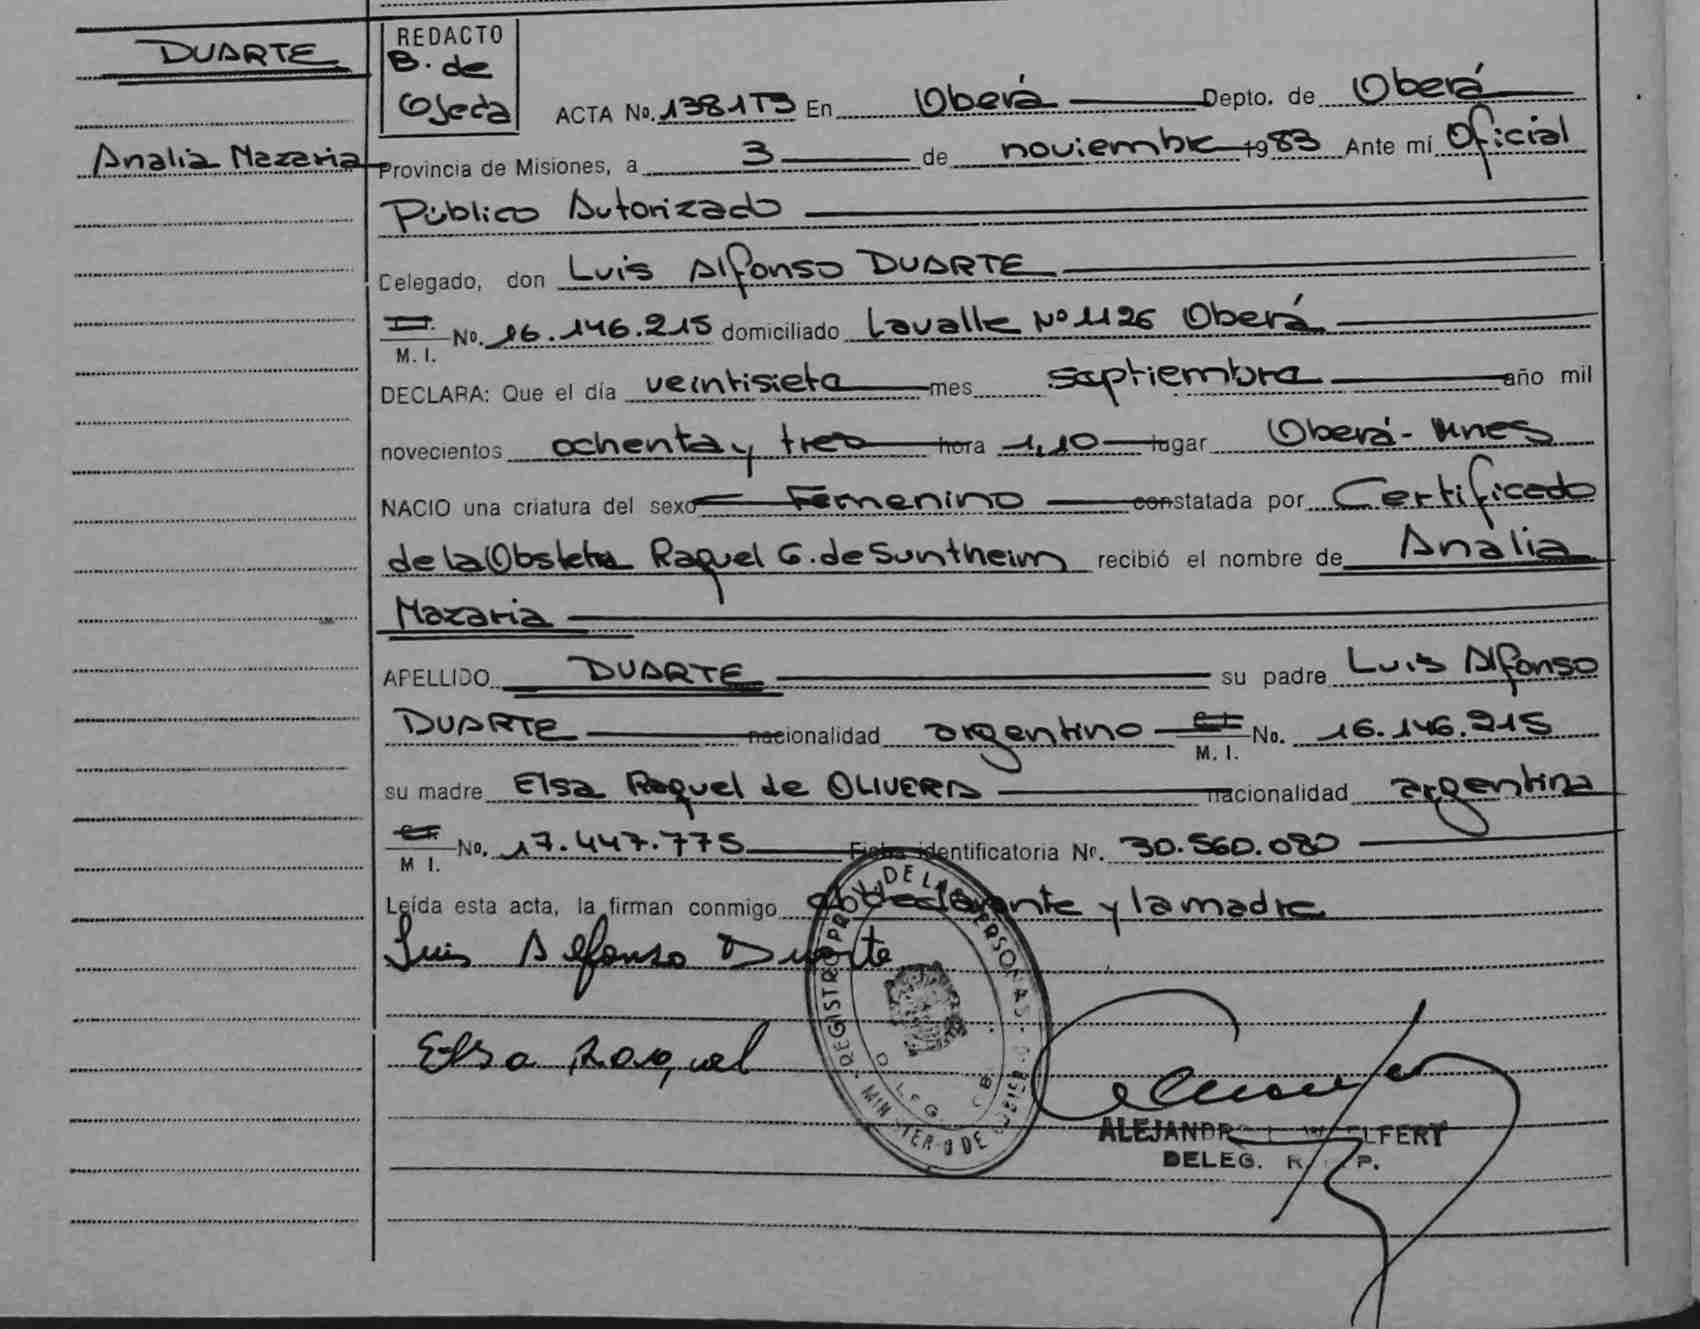 DUARTE
Analia Mazaria
REDACTO
B. de
Ojeda
ACTA No. 1381T3 En Oberá Depto. de Oberá
Provincia de Misiones, a 3 de noviembre 1983 Ante mí Oficial
Público Autorizado
Delegado, don Luis Alfonso DUARTE
M. I. No. 16.146.215 domiciliado Lavalle Nº 1126 Oberá
DECLARA: Que el día veintisiete mes septiembre año mil
novecientos ochenta y tres hora 1,10 lugar Oberá - Mnes
NACIO una criatura del sexo Femenino constatada por Certificado
de la Obstetra Raquel G. de Suntheim recibió el nombre de Analia
Mazaria
APELLIDO DUARTE su padre Luis Alfonso
DUARTE nacionalidad argentino M. I. No. 16.146.215
su madre Elsa Raquel de OLIVERA nacionalidad argentina
M I. No. 17.447.775 Ficha identificatoria Nº. 30.560.080
Leída esta acta, la firman conmigo el declarante y la madre
Luis Alfonso Duarte
Elsa Raquel
REGISTRO PROV. DE LAS PERSONAS
MINISTERIO DE GOBIERNO
ALEJANDRO
DELEG. R. P.